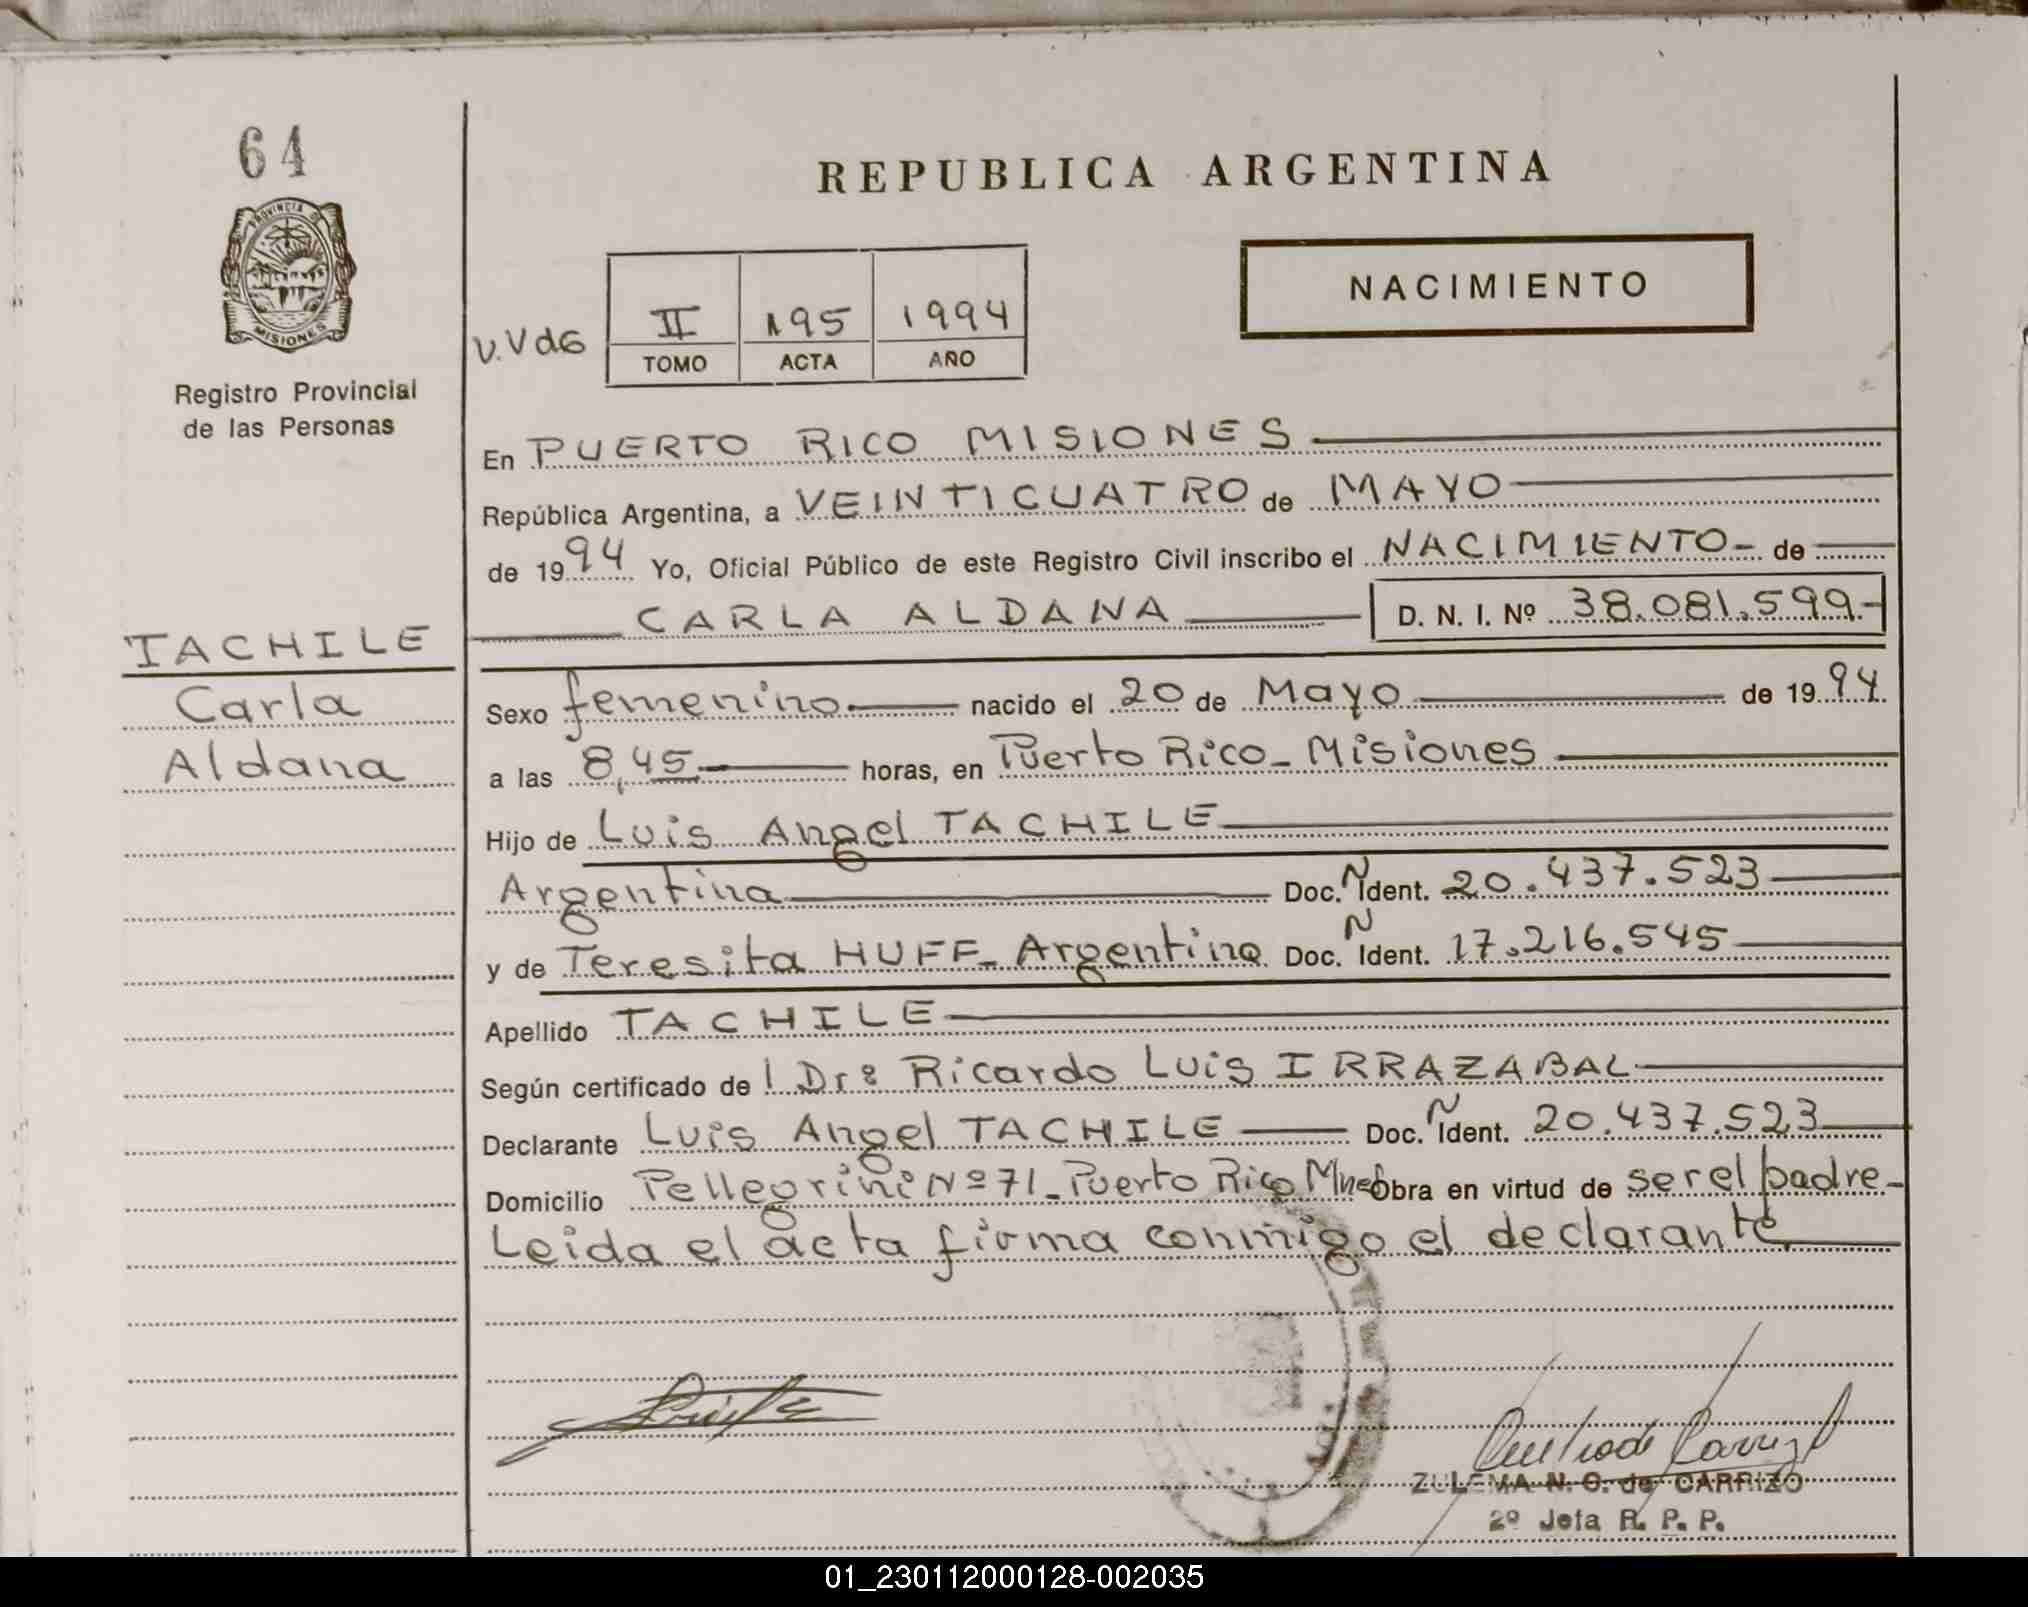 64
REPUBLICA ARGENTINA
PROVINCIA D
MISIONES
Registro Provincial
de las Personas
V.VdG
II 195 1994
TOMO ACTA AÑO
NACIMIENTO
En PUERTO RICO MISIONES
República Argentina, a VEINTICUATRO de MAYO
de 1994 Yo, Oficial Público de este Registro Civil inscribo el NACIMIENTO- de
CARLA ALDANA D. N. I. Nº 38.081.599.-
TACHILE
Carla
Aldana
Sexo femenino nacido el 20 de Mayo de 1994.
a las 8,45 horas, en Puerto Rico_Misiones
Hijo de Luis Angel TACHILE
Argentina Doc. N Ident. 20.437.523
y de Teresita HUFF_ Argentina Doc. N Ident. 17.216.545
Apellido TACHILE
Según certificado de ! Dr: Ricardo Luis IRRAZABAL
Declarante Luis Angel TACHILE Doc. N Ident. 20.437.523
Domicilio Pellegrini Nº 71_Puerto Rico Mnes Obra en virtud de ser el padre-
Leida el acta firma conmigo el declarante
ZULEMA N. C. de CARRIZO
2º Jefa R. P. P.
01_230112000128-002035